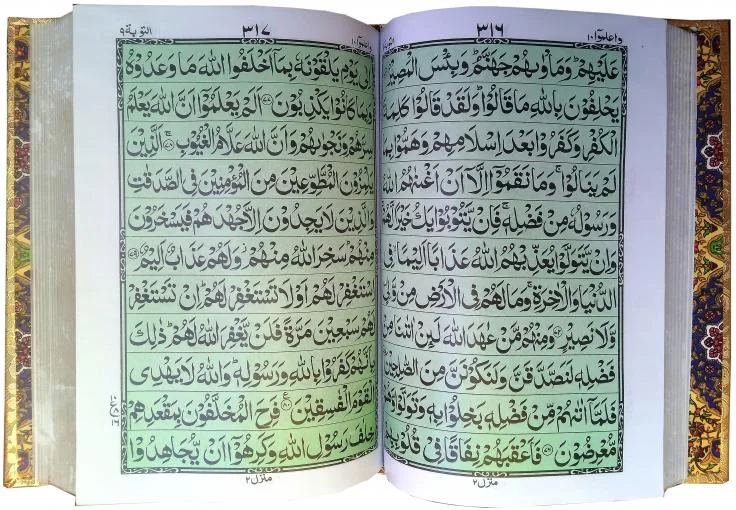 واعلموۤا ١٠
٣١٦
عَلَيْهِمْ ؕ وَمَاْوٰىهُمْ جَهَنَّمُ ؕ وَبِئْسَ الْمَصِيْرُ
يَحْلِفُوْنَ بِاللّٰهِ مَا قَالُوْا ؕ وَلَقَدْ قَالُوْا كَلِمَةَ
الْكُفْرِ وَكَفَرُوْا بَعْدَ اِسْلَامِهِمْ وَهَمُّوْا بِمَا
لَمْ يَنَالُوْا ۚ وَمَا نَقَمُوْۤا اِلَّاۤ اَنْ اَغْنٰهُمُ اللّٰهُ
وَرَسُوْلُهٗ مِنْ فَضْلِهٖ ۚ فَاِنْ يَّتُوْبُوْا يَكُ خَيْرًا لَّهُمْ ۚ
وَاِنْ يَّتَوَلَّوْا يُعَذِّبْهُمُ اللّٰهُ عَذَابًا اَلِيْمًا ۙ فِى
الدُّنْيَا وَالْاٰخِرَةِ ۚ وَمَا لَهُمْ فِى الْاَرْضِ مِنْ وَّلِىٍّ
وَّلَا نَصِيْرٍ ﴿۷۴﴾ وَمِنْهُمْ مَّنْ عٰهَدَ اللّٰهَ لَئِنْ اٰتٰىنَا مِنْ
فَضْلِهٖ لَنَصَّدَّقَنَّ وَلَنَكُوْنَنَّ مِنَ الصّٰلِحِيْنَ
فَلَمَّاۤ اٰتٰىهُمْ مِّنْ فَضْلِهٖ بَخِلُوْا بِهٖ وَتَوَلَّوْا وَّهُمْ
مُّعْرِضُوْنَ ﴿۷۶﴾ فَاَعْقَبَهُمْ نِفَاقًا فِىْ قُلُوْبِهِمْ
منزل ٢
واعلموۤا ١٠
٣١٧
التوبة ٩
اِلٰى يَوْمِ يَلْقَوْنَهٗ بِمَاۤ اَخْلَفُوا اللّٰهَ مَا وَعَدُوْهُ
وَبِمَا كَانُوْا يَكْذِبُوْنَ ﴿۷۷﴾ اَلَمْ يَعْلَمُوْۤا اَنَّ اللّٰهَ يَعْلَمُ
سِرَّهُمْ وَنَجْوٰىهُمْ وَاَنَّ اللّٰهَ عَلَّامُ الْغُيُوْبِ ﴿۷۸﴾ اَلَّذِيْنَ
يَلْمِزُوْنَ الْمُطَّوِّعِيْنَ مِنَ الْمُؤْمِنِيْنَ فِى الصَّدَقٰتِ
وَالَّذِيْنَ لَا يَجِدُوْنَ اِلَّا جُهْدَهُمْ فَيَسْخَرُوْنَ
مِنْهُمْ ؕ سَخِرَ اللّٰهُ مِنْهُمْ ؗ وَلَهُمْ عَذَابٌ اَلِيْمٌ ﴿۷۹﴾
اِسْتَغْفِرْ لَهُمْ اَوْ لَا تَسْتَغْفِرْ لَهُمْ ؕ اِنْ تَسْتَغْفِرْ
لَهُمْ سَبْعِيْنَ مَرَّةً فَلَنْ يَّغْفِرَ اللّٰهُ لَهُمْ ؕ ذٰلِكَ
بِاَنَّهُمْ كَفَرُوْا بِاللّٰهِ وَرَسُوْلِهٖ ؕ وَاللّٰهُ لَا يَهْدِى
الْقَوْمَ الْفٰسِقِيْنَ ﴿۸۰﴾ فَرِحَ الْمُخَلَّفُوْنَ بِمَقْعَدِهِمْ
خِلٰفَ رَسُوْلِ اللّٰهِ وَكَرِهُوْۤا اَنْ يُّجَاهِدُوْا
منزل ٢